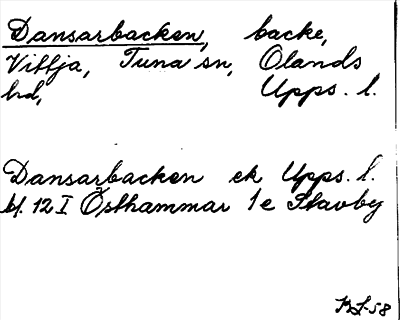 Dansarbacken, backe,
Vittja, Tuna sn, Olands
hd, Upps. l.
Dansarbacken ek Upps. l.
bl. 12 I Östhammar 1e Stavby